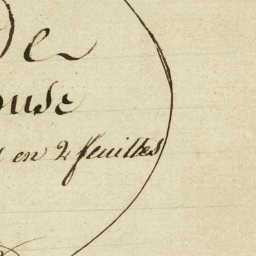 De
ouse
en 2 feuilles